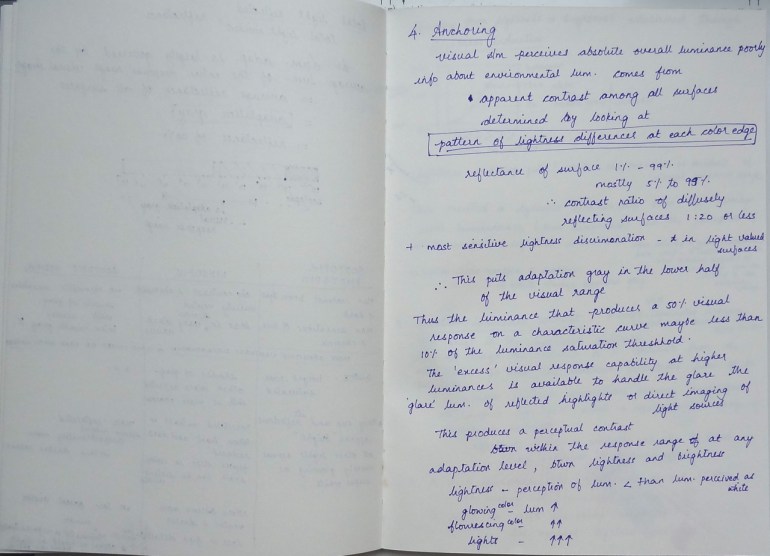 4. Anchoring
visual s/m perceives absolute overall luminance poorly
info about environmental lum. comes from
• apparent contrast among all surfaces
determined by looking at
pattern of lightness differences at each color edge
reflectance of surface 1% - 99%
mostly 5% to 95%
∴ contrast ratio of diffusely
reflecting surfaces 1:20 or less
+ most sensitive lightness discrimonation - in light valued
surfaces
∴ This puts adaptation gray in the lower half
of the visual range
Thus the luminance that produces a 50% visual
response on a characteristic curve maybe less than
10% of the luminance saturation threshhold.
The 'excess' visual response capability at higher
luminances is available to handle the glare the
'glare' lum. of reflected highlights or direct imaging of
light sources
This produces a perceptual contrast
within the response range of at any
adaptation level, btwn lightness and brightness
lightness - perception of lum. < than lum. perceived as
white
glowing color - lum ↑
flourescing color - ↑↑
lights - ↑↑↑